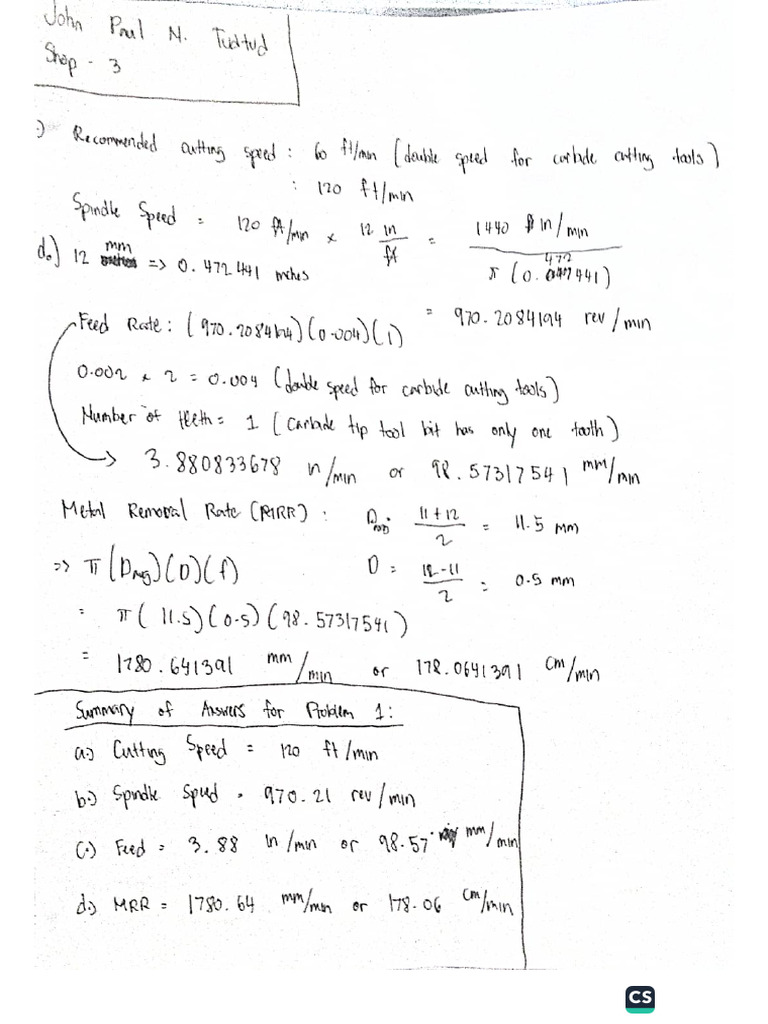 John Paul N. Tudtud
Shop - 3
.) Recommended cutting speed : 60 ft/min (double speed for carbide cutting tools)
: 120 ft/min
Spindle Speed = 120 ft/min × 12 in/ft = 1440 in/min / π (0.472441)
d.) 12 mm => 0.472441 inches
= 970.2084194 rev/min
Feed Rate : (970.2084194)(0.004)(1)
0.002 × 2 = 0.004 (double speed for carbide cutting tools)
Number of teeth = 1 (Carbide tip tool bit has only one tooth)
3.880833678 in/min or 98.57317541 mm/min
Metal Removal Rate (MRR) : Davg: 11+12/2 = 11.5 mm
=> π(Davg)(D)(f) D = 12-11/2 = 0.5 mm
= π(11.5)(0.5)(98.57317541)
= 1780.641391 mm/min or 178.0641391 cm/min
Summary of Answers for Problem 1:
a.) Cutting Speed = 120 ft/min
b.) Spindle Speed = 970.21 rev/min
c.) Feed = 3.88 in/min or 98.57 mm/min
d.) MRR = 1780.64 mm/min or 178.06 cm/min
CS